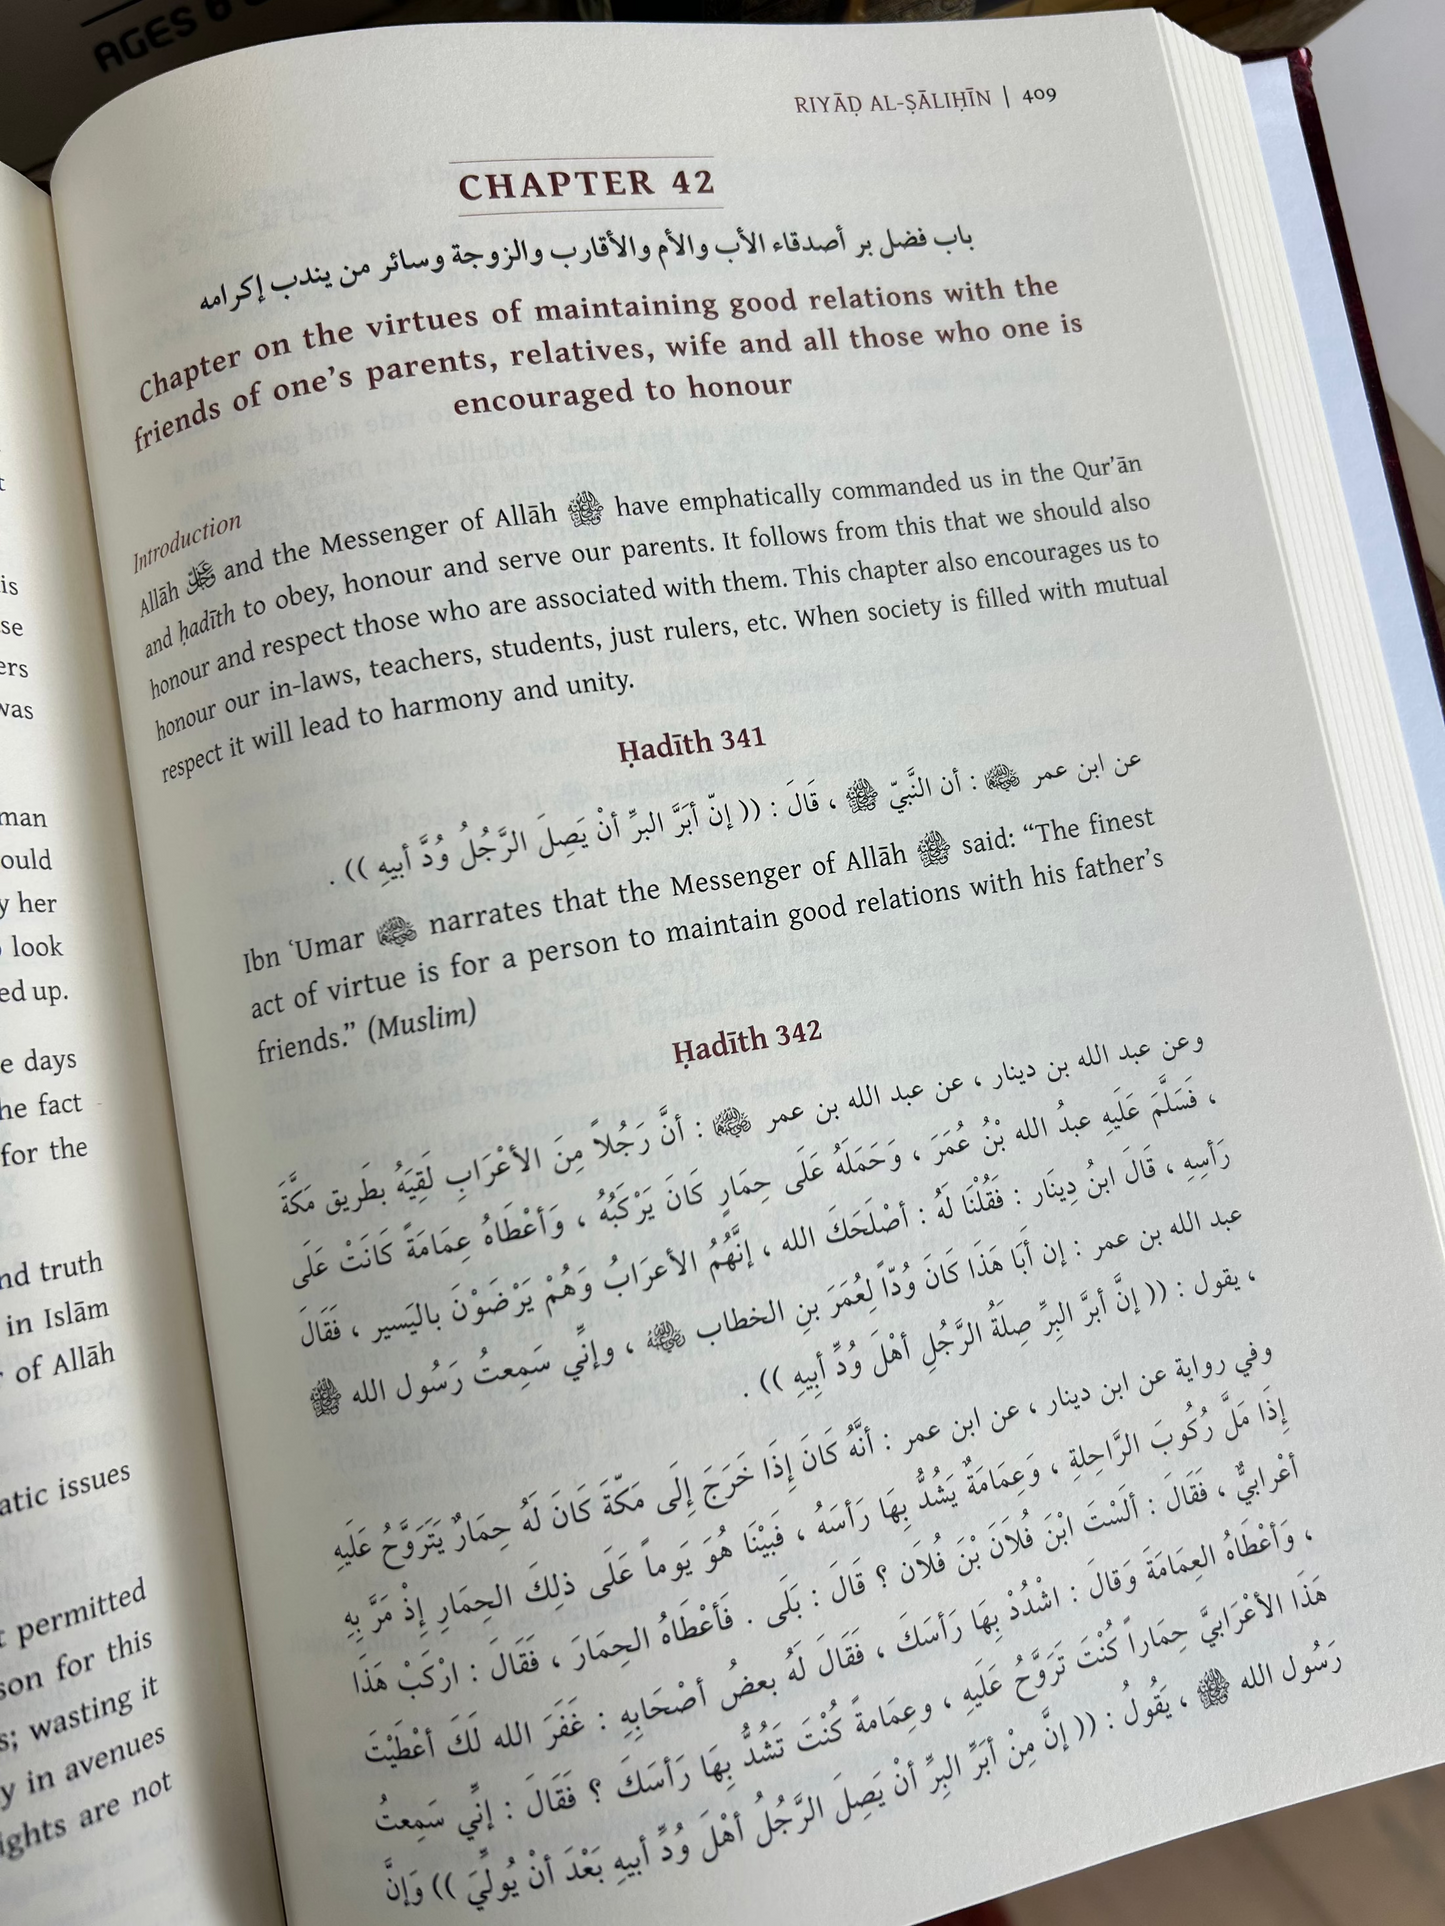 AGES 6
is
se
ers
was
man
ould
y her
look
ed up.
e days
he fact
for the
nd truth
in Islām
of Allāh
atic issues
t permitted
son for this
s; wasting it
y in avenues
ights are not
RIYĀḌ AL-ṢĀLIḤĪN | 409
CHAPTER 42
باب فضل بر أصدقاء الأب والأم والأقارب والزوجة وسائر من يندب إكرامه
Chapter on the virtues of maintaining good relations with the
friends of one's parents, relatives, wife and all those who one is
encouraged to honour
Introduction
Allāh ﷻ and the Messenger of Allāh ﷺ have emphatically commanded us in the Qur'ān
and ḥadīth to obey, honour and serve our parents. It follows from this that we should also
honour and respect those who are associated with them. This chapter also encourages us to
honour our in-laws, teachers, students, just rulers, etc. When society is filled with mutual
respect it will lead to harmony and unity.
Ḥadīth 341
عن ابن عمر : أن النَّبيّ ﷺ ، قَالَ : (( إنّ أبَرَّ البرِّ أنْ يَصِلَ الرَّجُلُ وُدَّ أبيهِ )) .
Ibn ʻUmar narrates that the Messenger of Allāh ﷺ said: “The finest
act of virtue is for a person to maintain good relations with his father's
friends.” (Muslim)
Ḥadīth 342
وعن عبد الله بن دينار ، عن عبد الله بن عمر : أنَّ رَجُلاً مِنَ الأعْرَابِ لَقِيَهُ بطَريق مَكَّةَ
، فَسَلَّمَ عَلَيهِ عبدُ الله بْنُ عُمَرَ ، وَحَمَلَهُ عَلَى حِمَارٍ كَانَ يَرْكَبُهُ ، وَأعْطَاهُ عِمَامَةً كَانَتْ عَلَى
رَأسِهِ ، قَالَ ابنُ دِينَار : فَقُلْنَا لَهُ : أصْلَحَكَ الله ، إنَّهُمُ الأعرَابُ وَهُمْ يَرْضَوْنَ باليَسير ، فَقَالَ
عبد الله بن عمر : إن أبَا هَذَا كَانَ وُدّاً لِعُمَرَ بنِ الخطاب ، وإنِّي سَمِعتُ رَسُول الله ﷺ
، يقول : (( إنَّ أبرَّ البِرِّ صِلَةُ الرَّجُلِ أهْلَ وُدِّ أبِيهِ )) .
وفي رواية عن ابن دينار ، عن ابن عمر : أنَّهُ كَانَ إِذَا خَرَجَ إِلَى مَكّةَ كَانَ لَهُ حِمَارٌ يَتَرَوَّحُ عَلَيهِ
إِذَا مَلَّ رُكُوبَ الرَّاحِلةِ ، وَعِمَامَةٌ يَشُدُّ بِهَا رَأسَهُ ، فَبَيْنَا هُوَ يَوماً عَلَى ذلِكَ الحِمَارِ إِذْ مَرَّ بِهِ
أعْرابيٌّ ، فَقَالَ : ألَسْتَ ابْنَ فُلاَنَ بْنَ فُلاَن ؟ قَالَ : بَلَى . فَأعْطَاهُ الحِمَارَ ، فَقَالَ : ارْكَبْ هَذَا
، وَأعْطَاهُ العِمَامَةَ وَقالَ : اشْدُدْ بِهَا رَأسَكَ ، فَقَالَ لَهُ بعضُ أصْحَابِهِ : غَفَرَ الله لَكَ أعْطَيْتَ
هَذَا الأعْرَابيَّ حِمَاراً كُنْتَ تَرَوَّحُ عَلَيهِ ، وعِمَامةً كُنْتَ تَشُدُّ بِهَا رَأسَكَ ؟ فَقَالَ : إنِّي سَمِعتُ
رَسُول الله ﷺ ، يَقُولُ : (( إنَّ مِنْ أبَرِّ البِرِّ أنْ يَصِلَ الرَّجُلُ أهْلَ وُدِّ أبيهِ بَعْدَ أنْ يُولِّيَ )) وَإنَّ